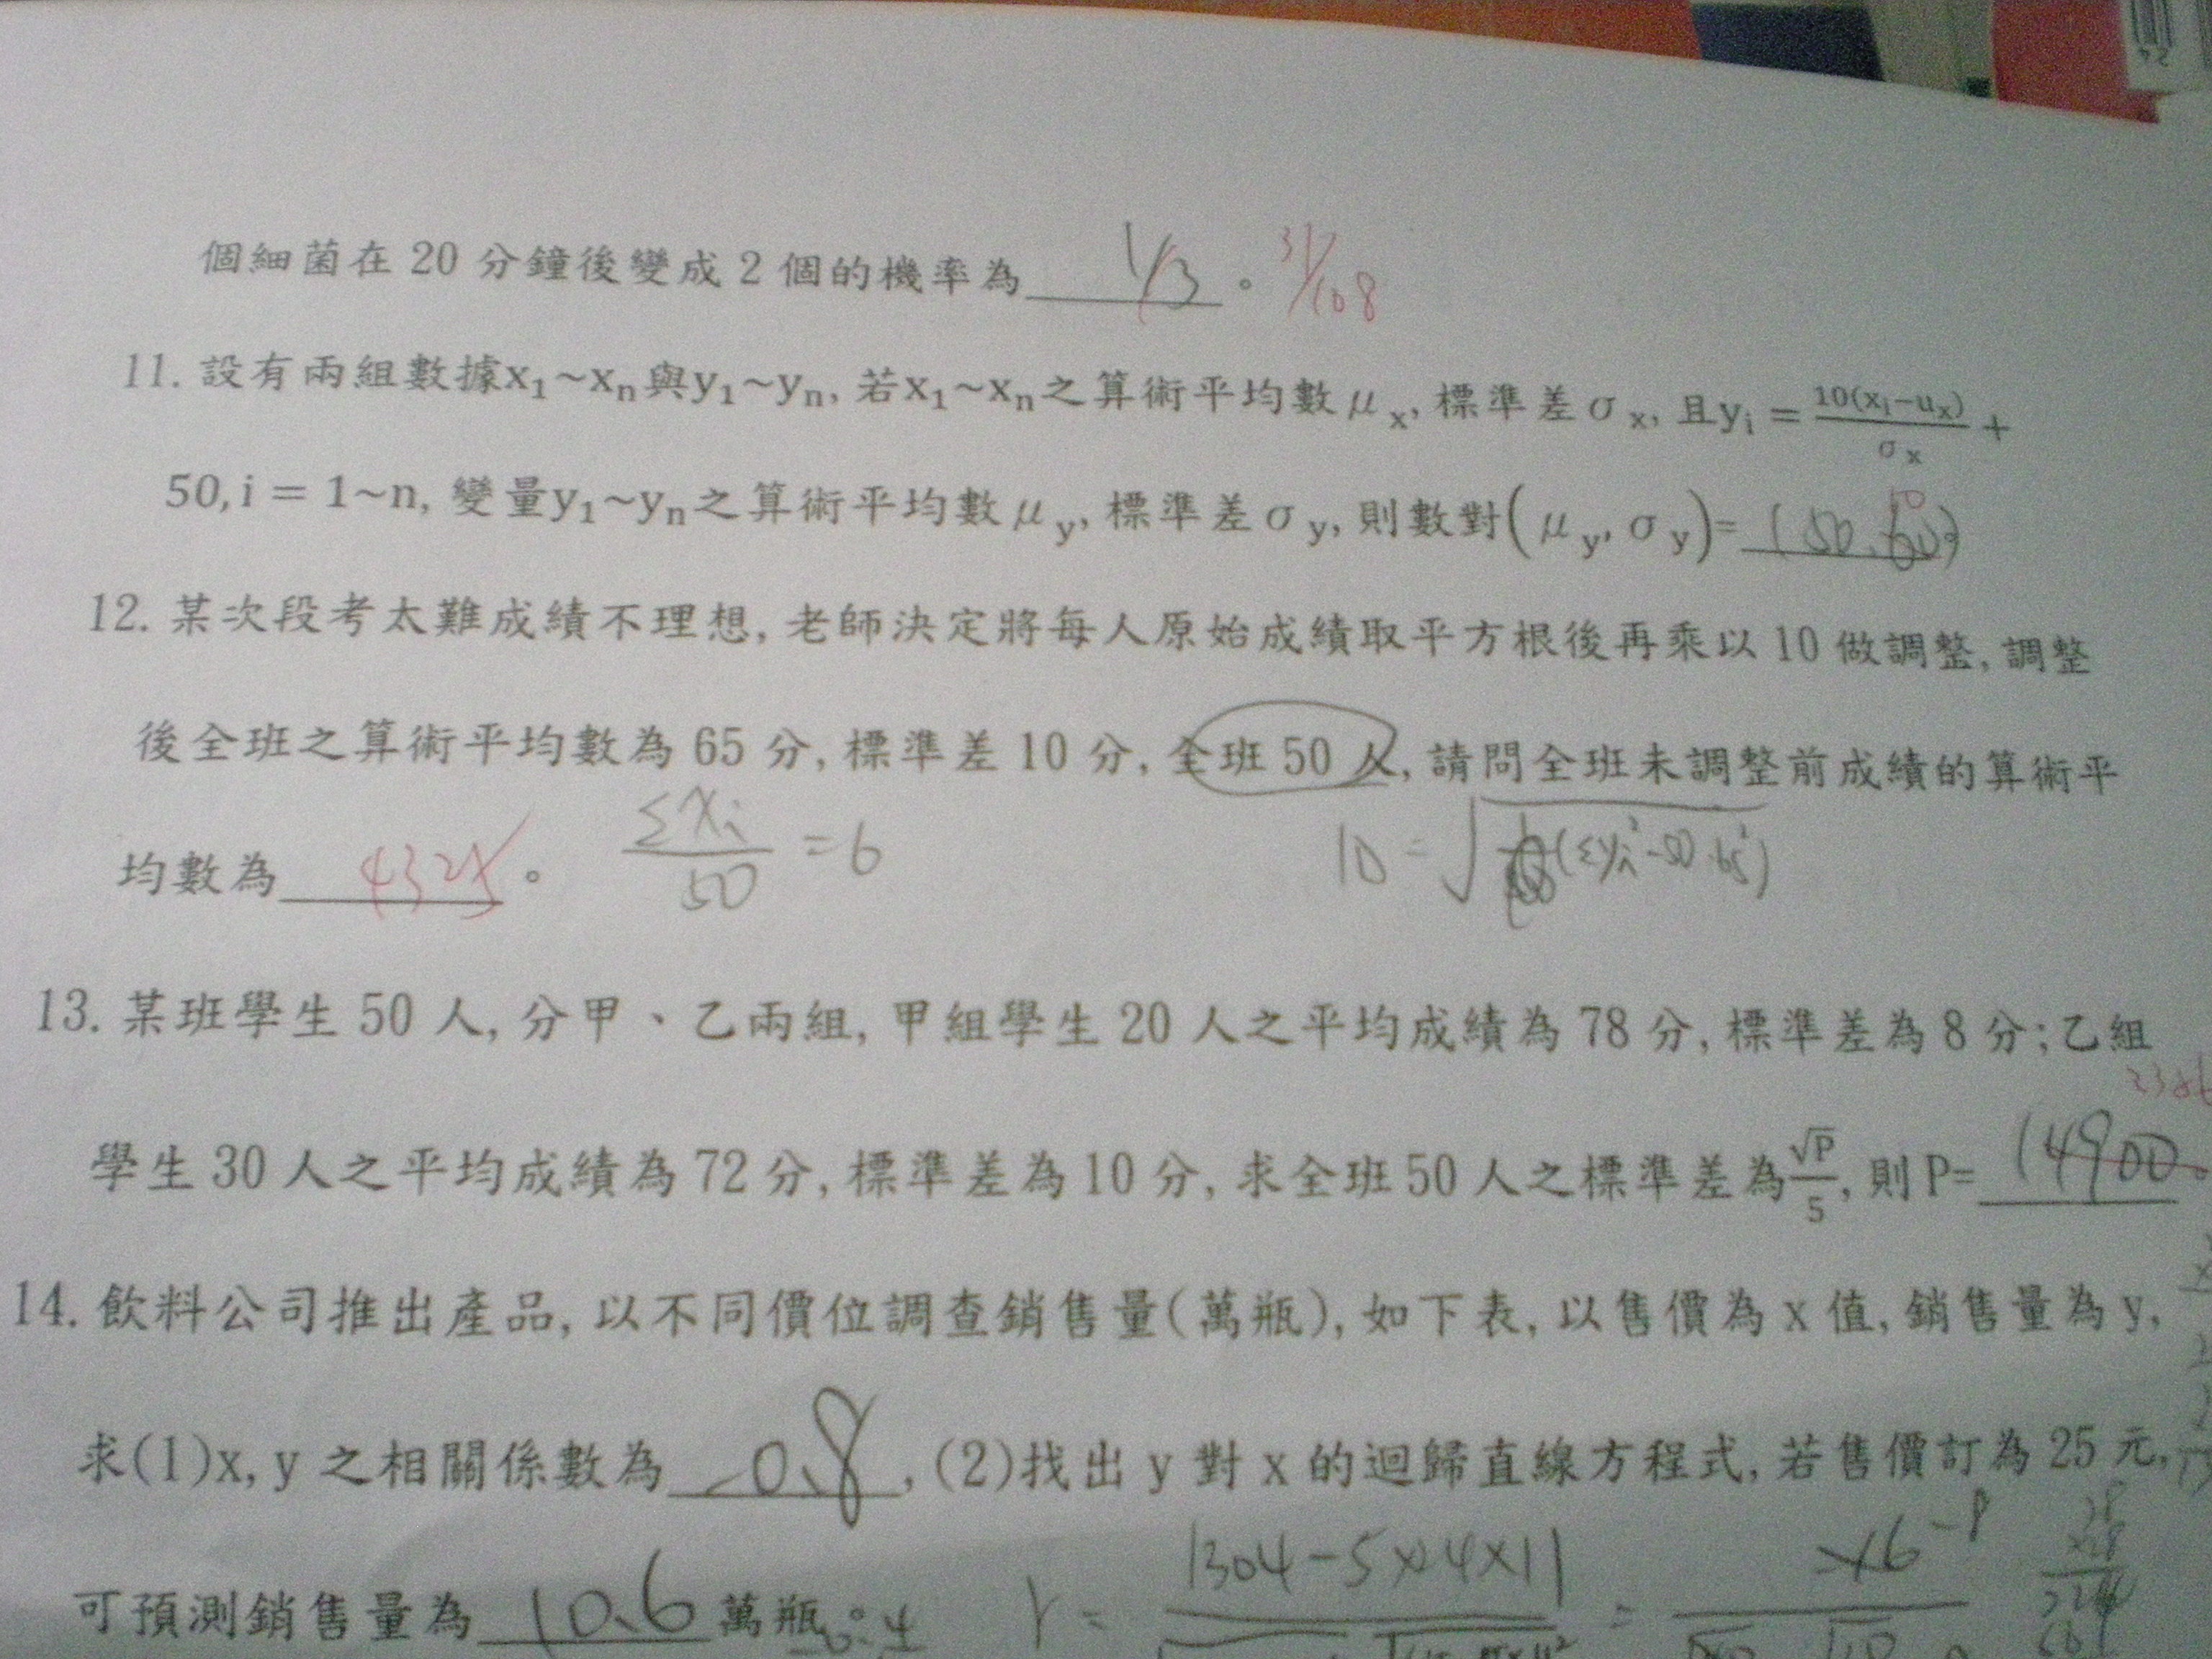 個細菌在 20 分鐘後變成 2 個的機率為 1/3 。 31/108
11. 設有兩組數據x₁~xₙ與y₁~yₙ, 若x₁~xₙ之算術平均數μₓ, 標準差σₓ, 且yᵢ = 10(xᵢ−uₓ)/σₓ +
50, i = 1~n, 變量y₁~yₙ之算術平均數μ_y, 標準差σ_y, 則數對(μ_y, σ_y)= (50, 10)。
12. 某次段考太難成績不理想, 老師決定將每人原始成績取平方根後再乘以 10 做調整, 調整
後全班之算術平均數為 65 分, 標準差 10 分, 全班 50 人, 請問全班未調整前成績的算術平
均數為 43.25 。 Σxᵢ/50 = 6 10 = √
13. 某班學生 50 人, 分甲、乙兩組, 甲組學生 20 人之平均成績為 78 分, 標準差為 8 分; 乙組
學生 30 人之平均成績為 72 分, 標準差為 10 分, 求全班 50 人之標準差為√P/5, 則 P= 14900
14. 飲料公司推出產品, 以不同價位調查銷售量(萬瓶), 如下表, 以售價為 x 值, 銷售量為 y,
求(1)x, y 之相關係數為 -0.8 , (2)找出 y 對 x 的迴歸直線方程式, 若售價訂為 25 元,
可預測銷售量為 10.6 萬瓶。 r =